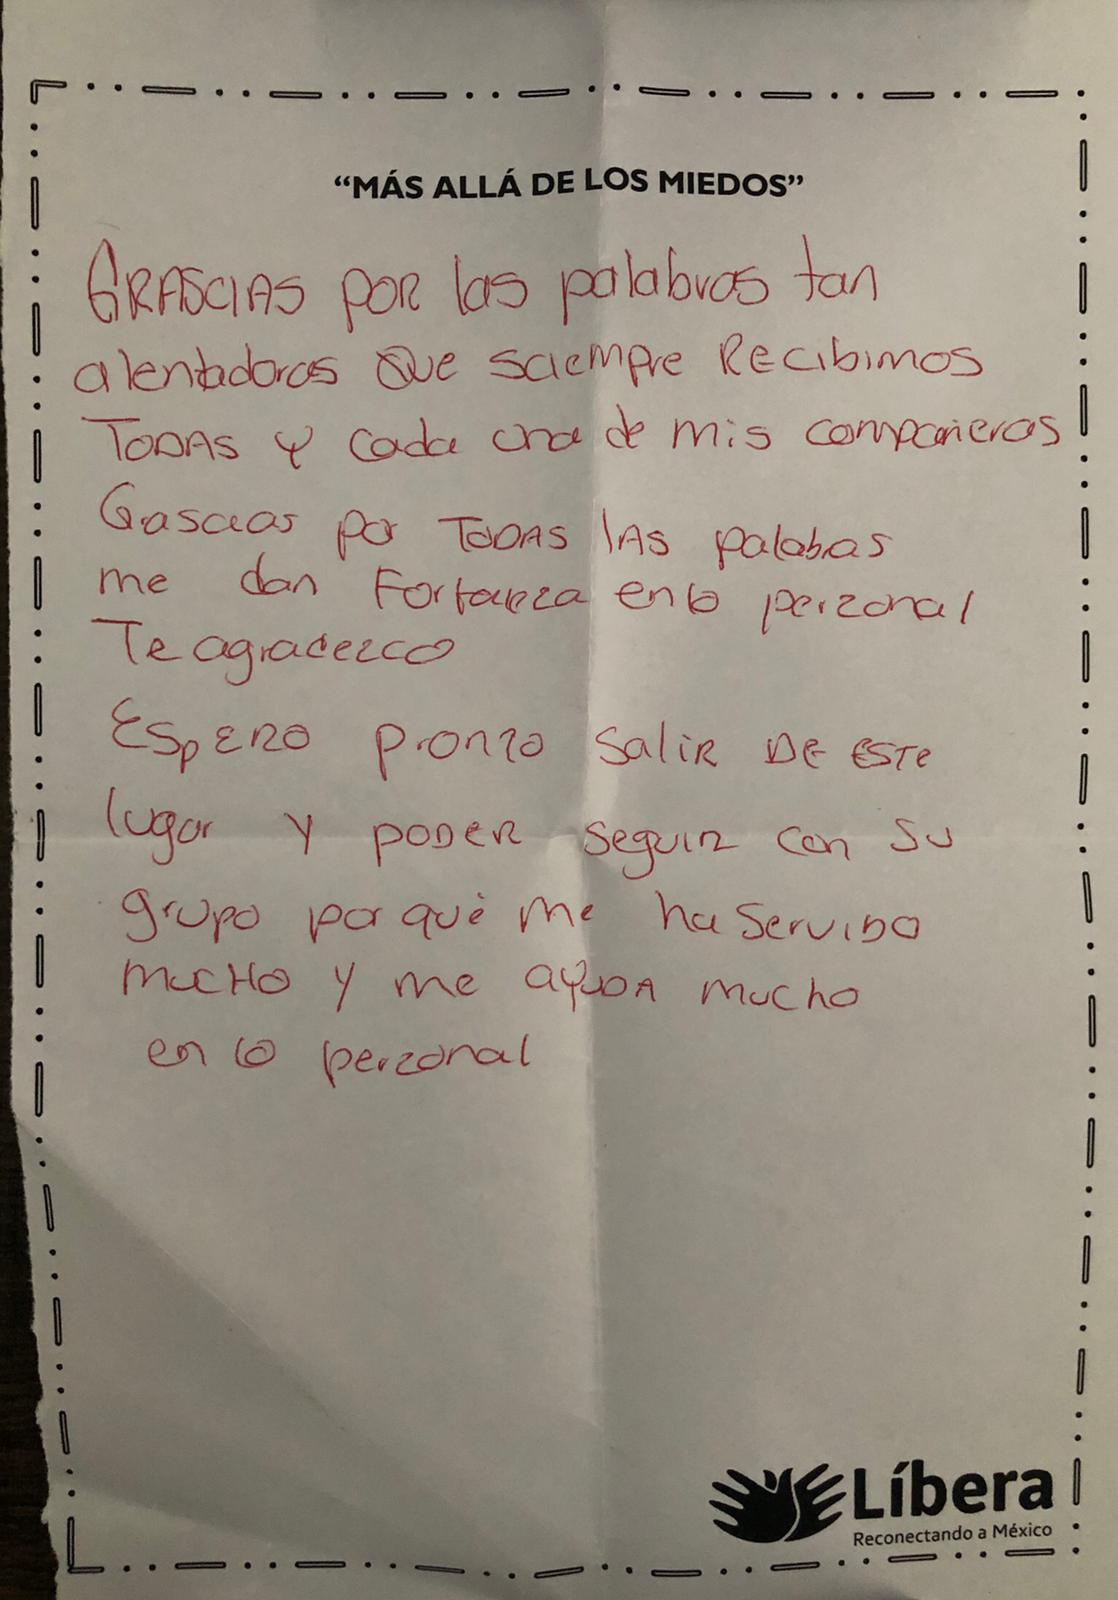 “MÁS ALLÁ DE LOS MIEDOS”
GRASCIAS POR las palabras tan
alentadoras QUe saiempre RECibimos
TODAS y cada una de mis compañeras
Gascias por TODAS lAS palabras
me dan Fortaleza en lo perzonal
Te agradezco
ESpERO pronto SaliR DE ESTe
lugar y PODER seguiR con su
grupo por qué me ha ServiDo
MUCHO y me ayuDA mucho
en lo perzonal
Líbera
Reconectando a México